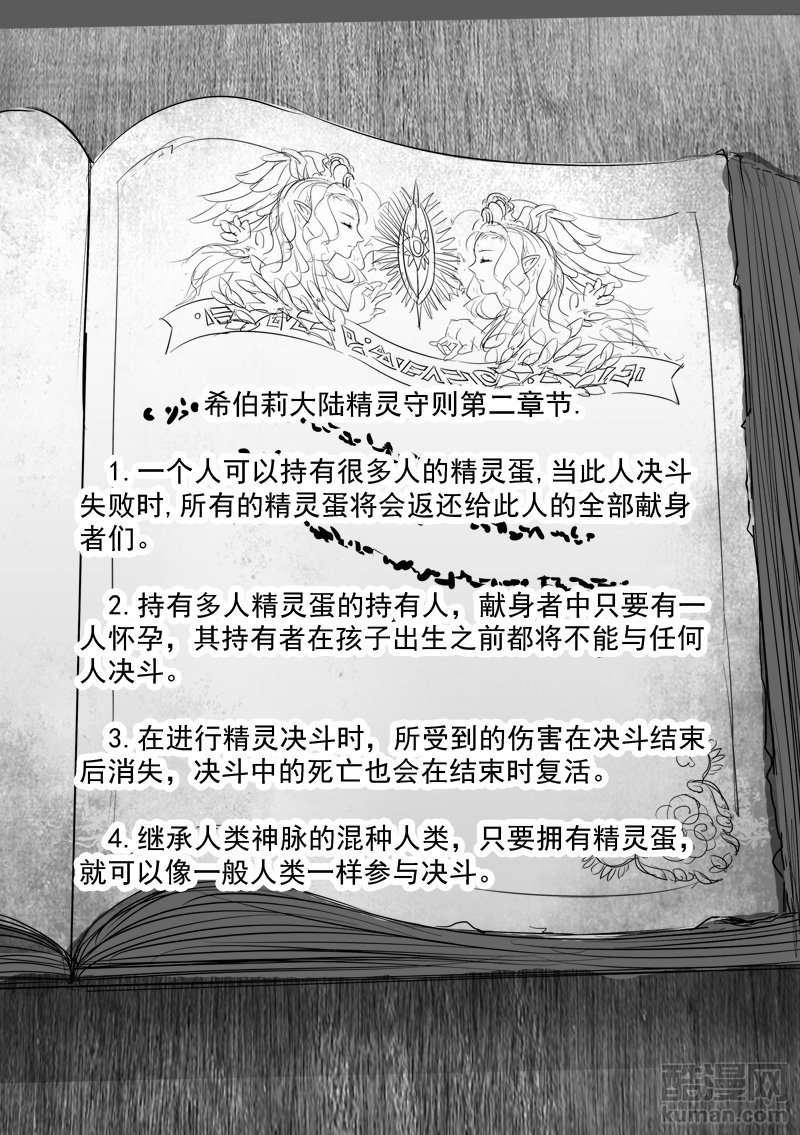 希伯莉大陆精灵守则第二章节.
1.一个人可以持有很多人的精灵蛋,当此人决斗
失败时,所有的精灵蛋将会返还给此人的全部献身
者们。
2.持有多人精灵蛋的持有人，献身者中只要有一
人怀孕，其持有者在孩子出生之前都将不能与任何
人决斗。
3.在进行精灵决斗时，所受到的伤害在决斗结束
后消失，决斗中的死亡也会在结束时复活。
4.继承人类神脉的混种人类，只要拥有精灵蛋，
就可以像一般人类一样参与决斗。
酷漫网
kuman.com